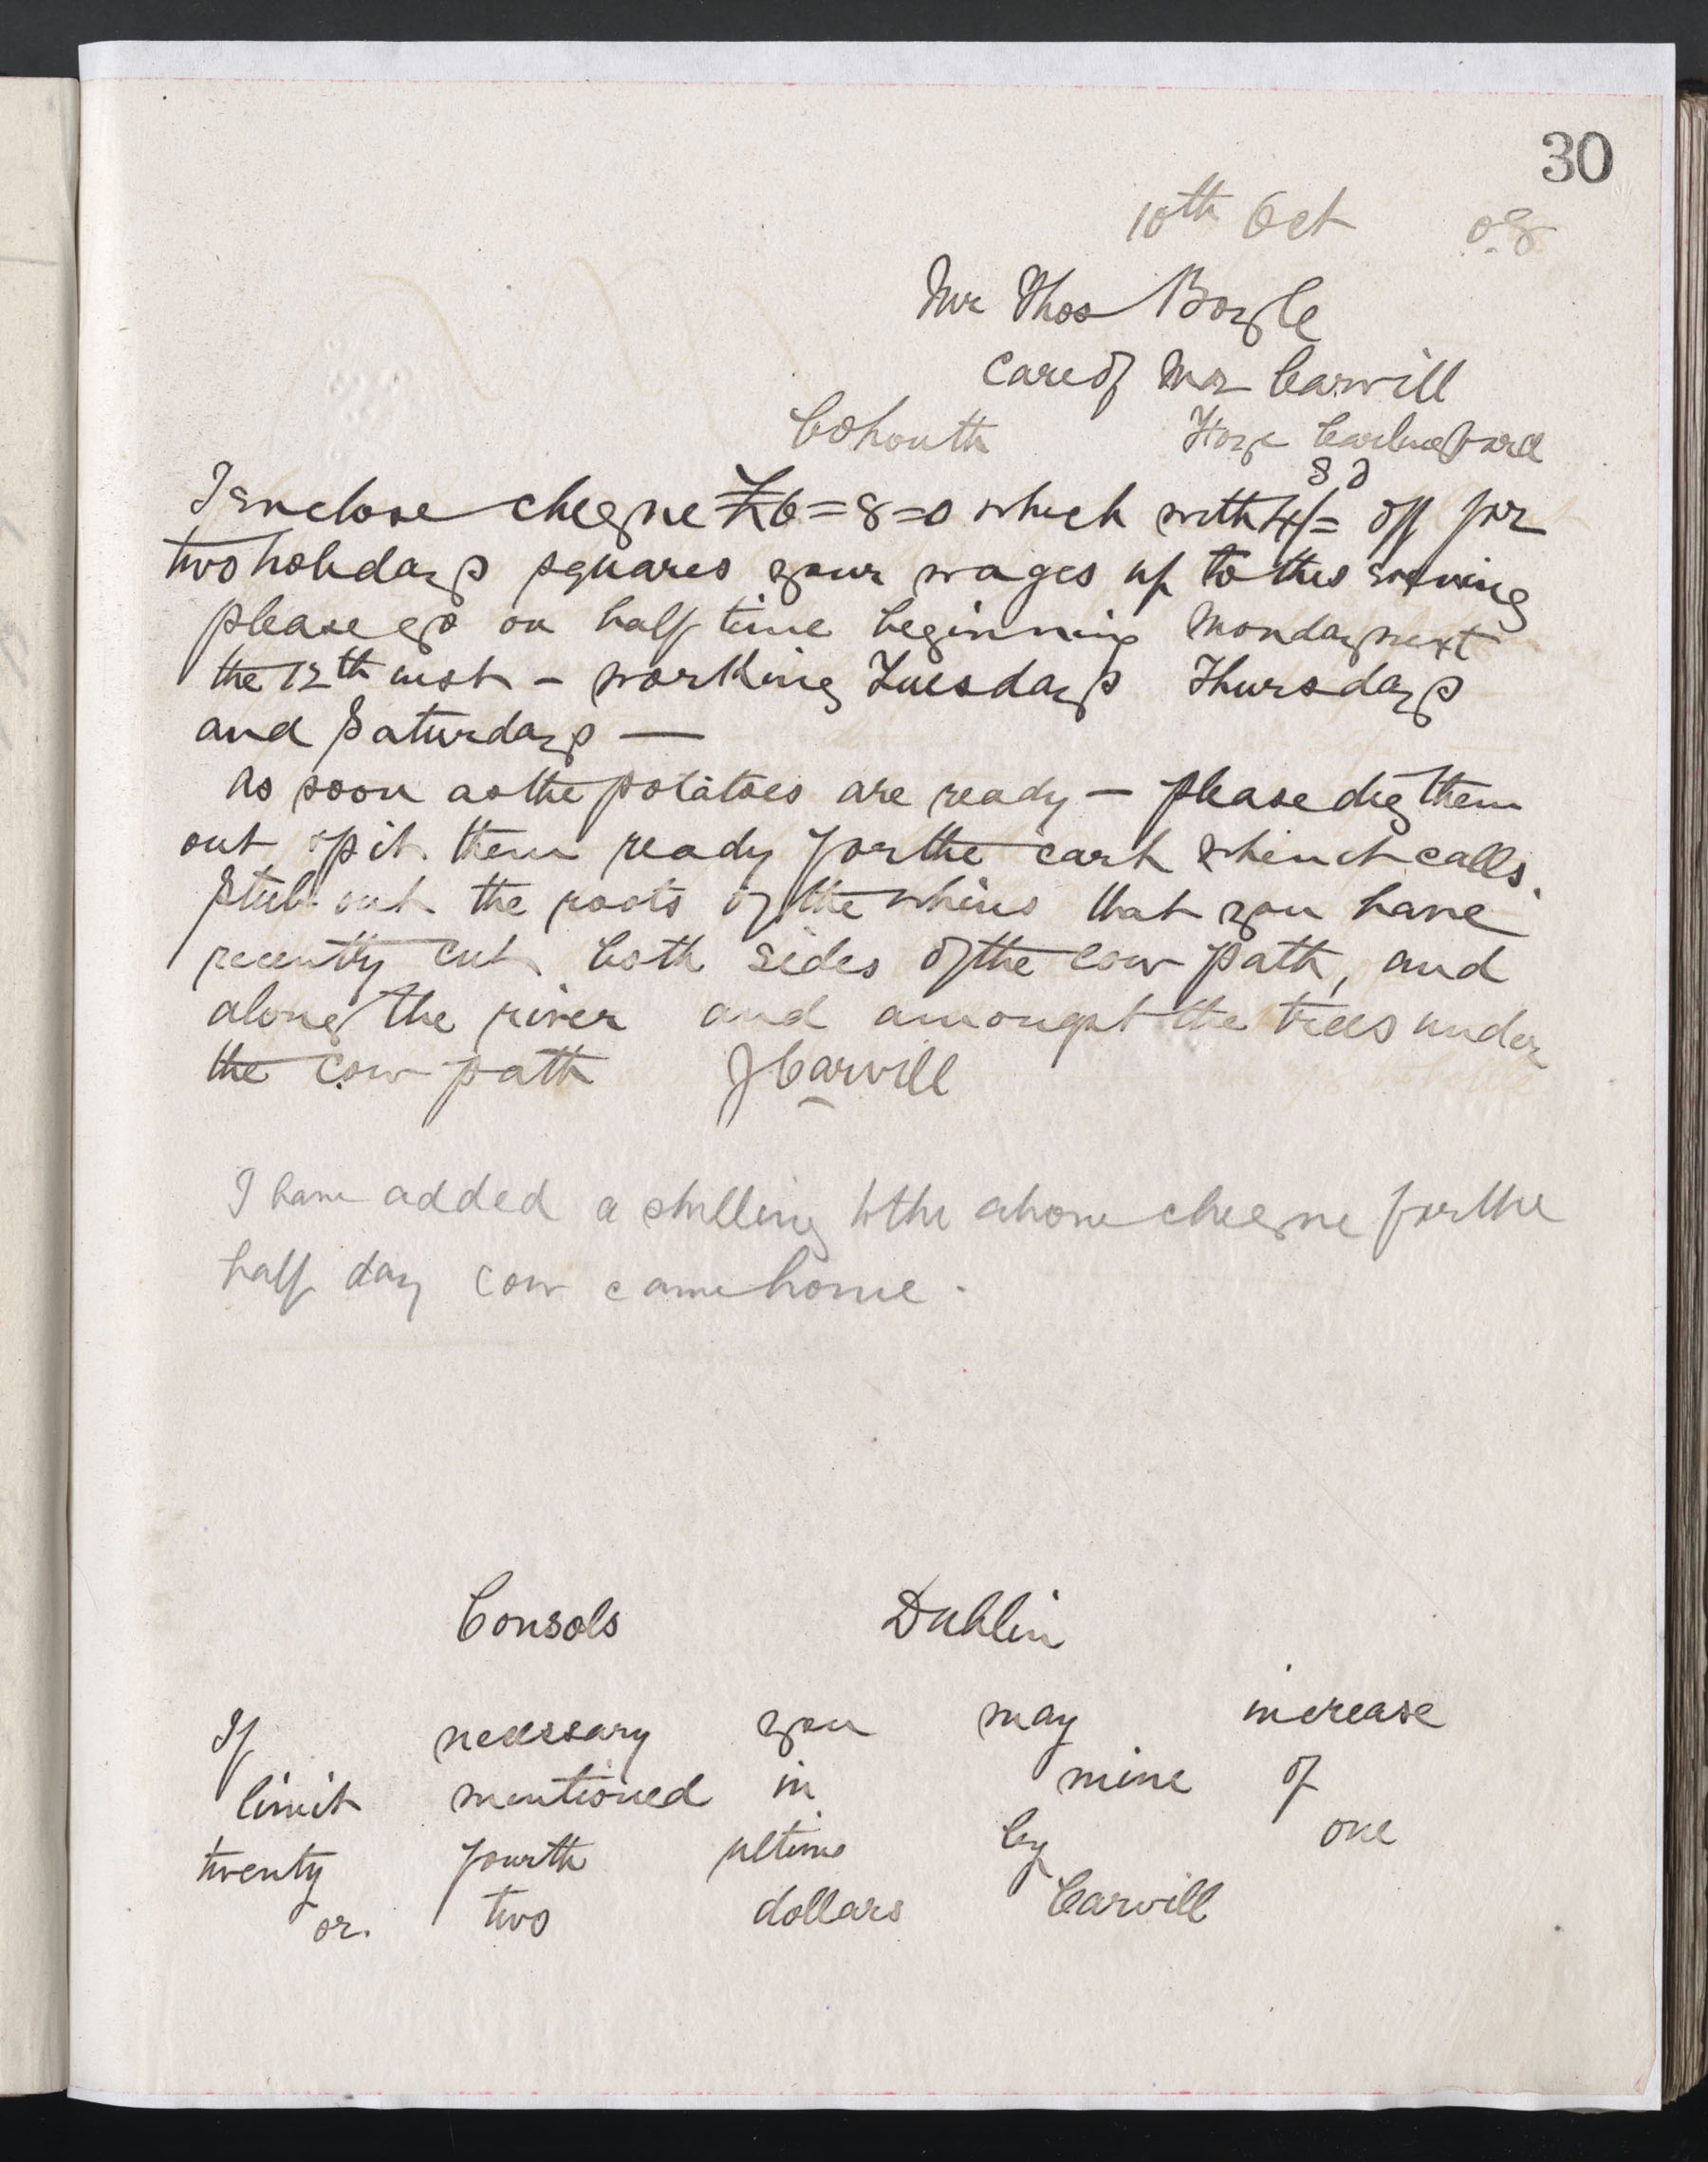 30
10th Oct 08
Mr Thos Boyle
Care of Mrs Carvill
Co Louth
I enclose cheque £6=8=0 which with 4/= off for
s d
two holidays squares your wages up to this evening
please go on half time beginning Monday next
the 12th inst - working Tuesdays Thursdays
and Saturdays —
As soon as the potatoes are ready — please dig them
out & pit them ready for the cart when it calls.
Stub out the roots of the whins that you have
recently cut both sides of the cow path, and
along the river and amongst the trees under
the cow path J Carvill
I have added a shilling to the above cheque for the
half day cow came home.
Consols Dublin
If necessary you may increase
limit mentioned in mine of
twenty fourth ultimo by one
or two dollars Carvill